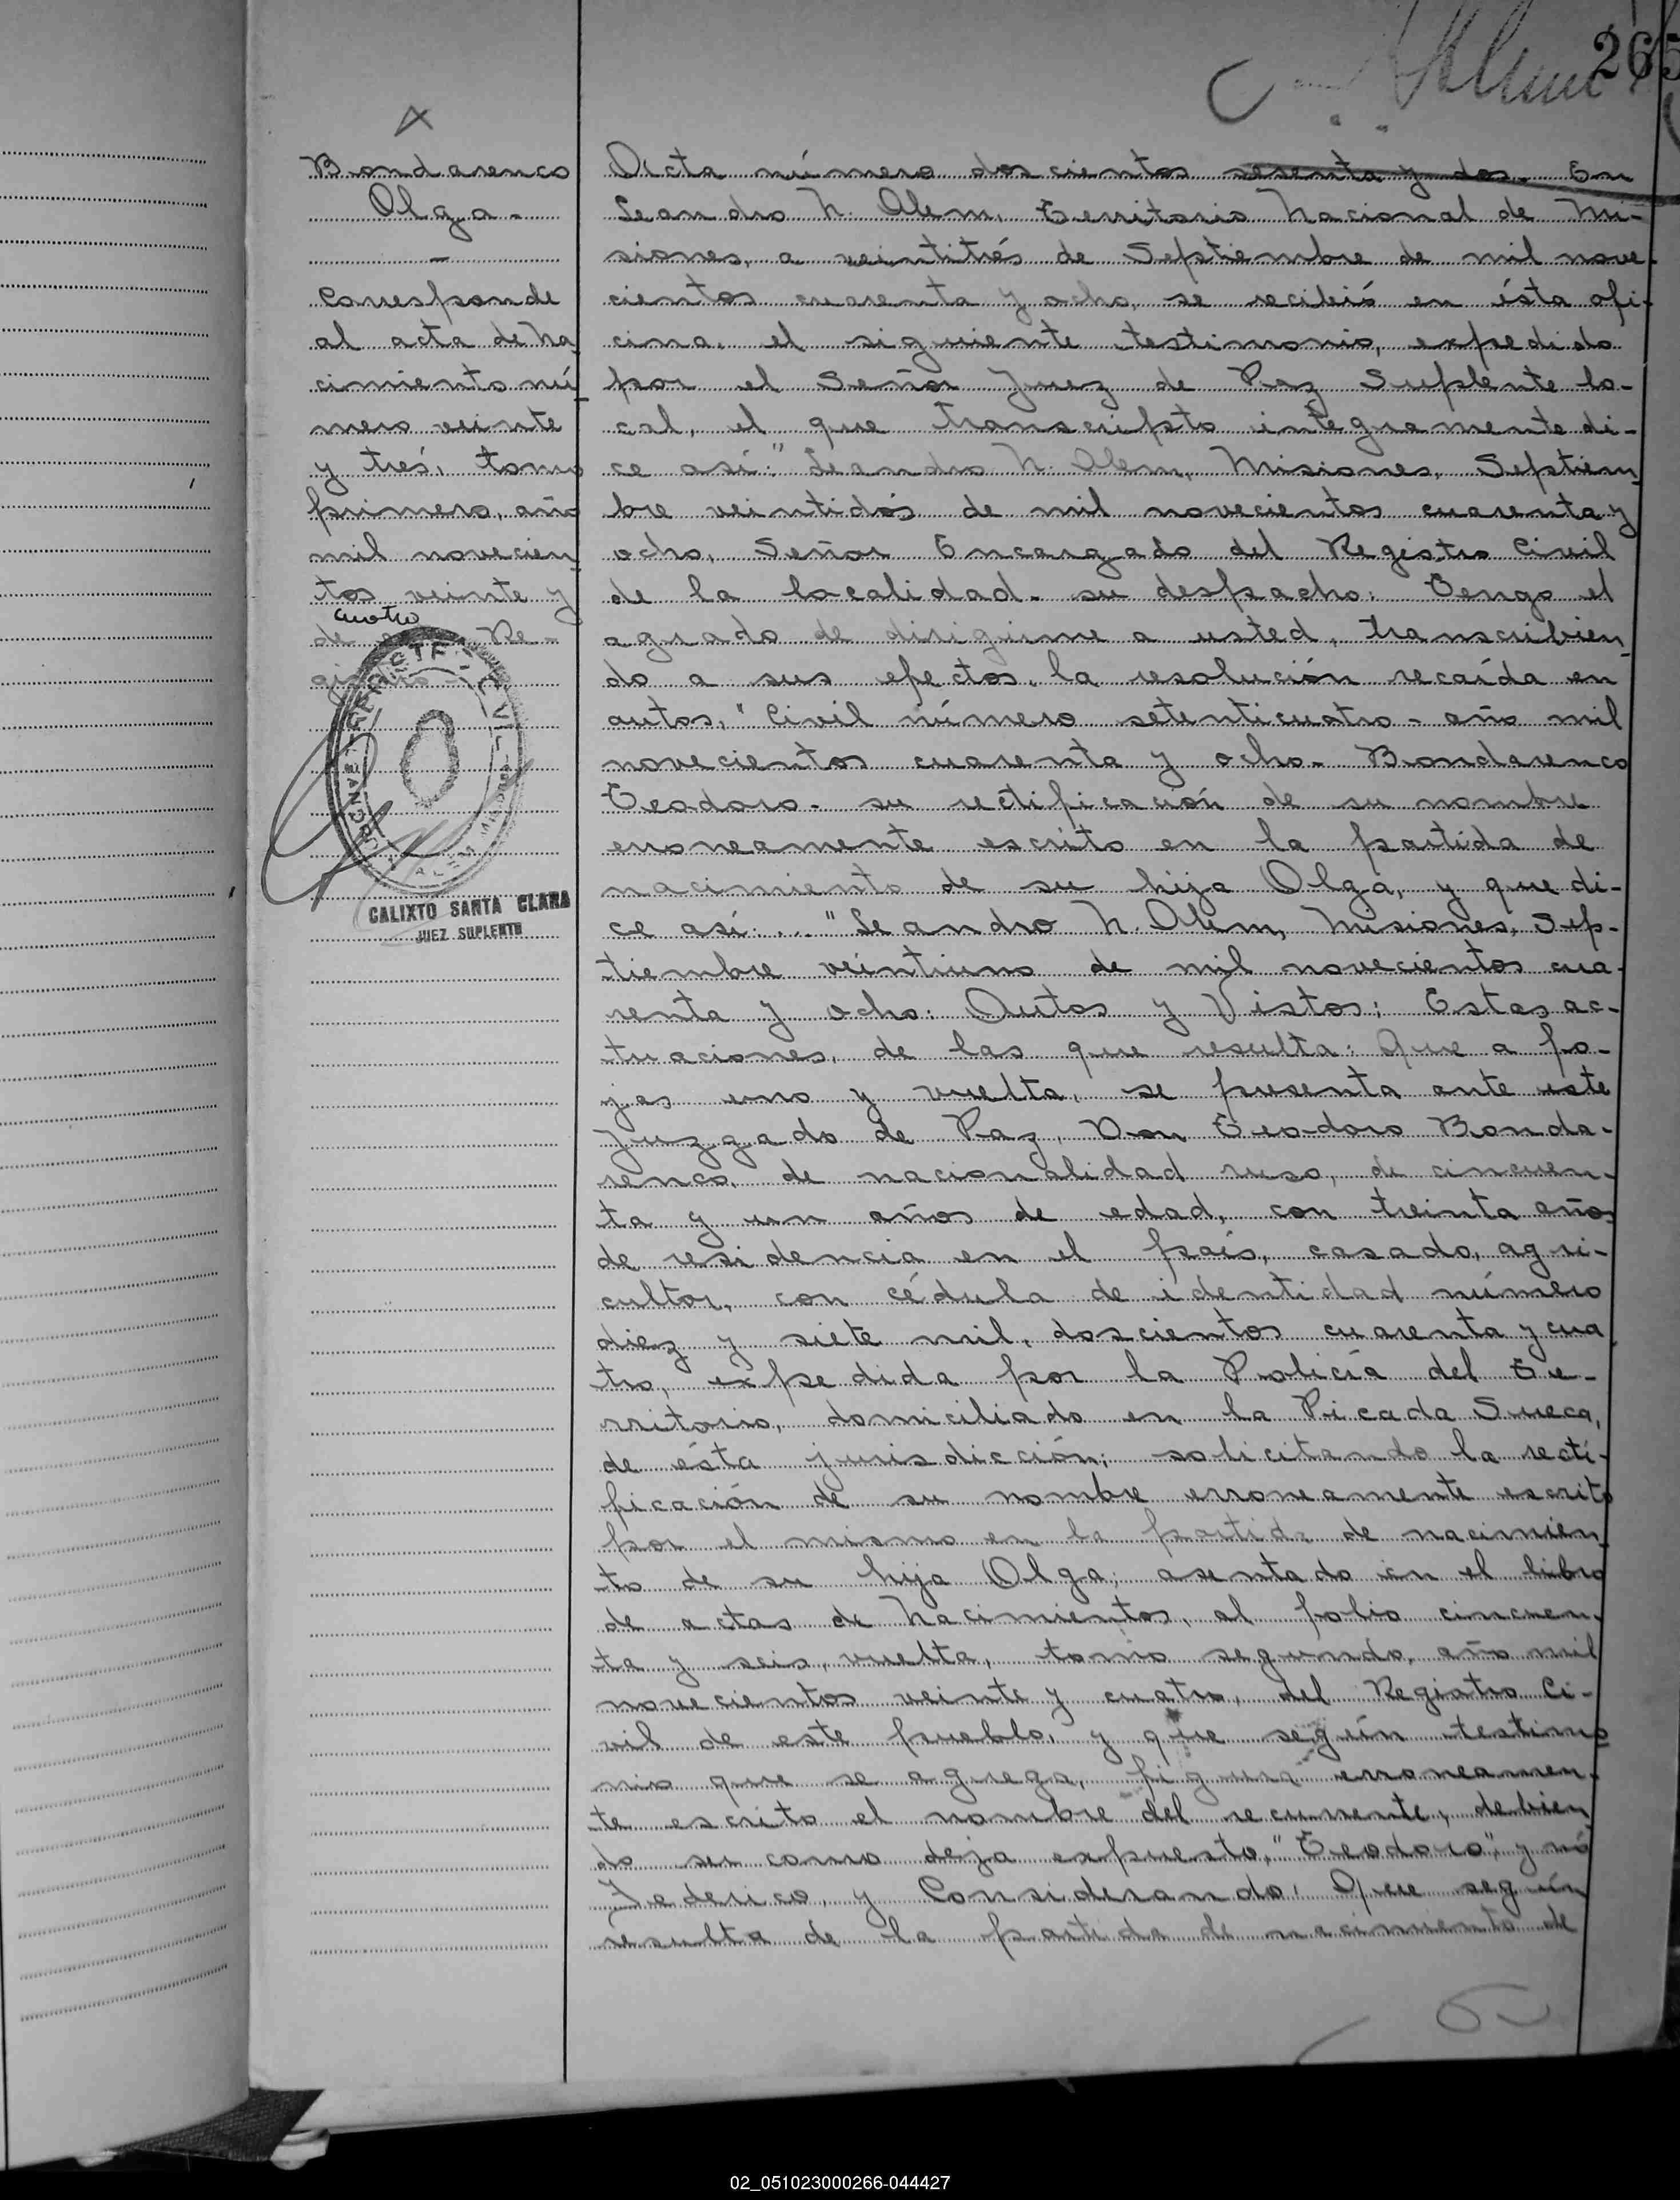 265
Bondarenco
Olga.-
-
Corresponde
al acta de Na
cimiento nú
mero veinte
y trés, tomo
primero, año
mil novecien
tos veinte y
cuatro
de Re-
gistro.-
REGISTRO CIVIL
LEANDRO N. ALEM
CALIXTO SANTA CLARA
JUEZ SUPLENTE
Acta número doscientos sesenta y dos. En
Leandro N. Alem, Territorio Nacional de Mi-
siones, a veintitrés de Septiembre de mil nove-
cientos cuarenta y ocho, se recibió en ésta ofi-
cina, el siguiente testimonio, expedido
por el Señor Juez de Paz Suplente lo-
cal, el que transcripto integramente di-
ce así: "Leandro N. Alem, Misiones, Septiem
bre veintidós de mil novecientos cuarenta y
ocho, Señor Encargado del Registro Civil
de la localidad. su despacho: Tengo el
agrado de dirigirme a usted, transcribien
do a sus efectos, la resolución recaída en
autos, "Civil número setenticuatro - año mil
novecientos cuarenta y ocho. Bondarenco
Teodoro. su rectificación de su nombre
erroneamente escrito en la partida de
nacimiento de su hija Olga, y que di-
ce así: ... "Leandro N. Alem, Misiones, Sep-
tiembre veintiuno de mil novecientos cua-
renta y ocho: Autos y Vistos; Estas ac-
tuaciones, de las que resulta: Que a fo-
jas uno y vuelta, se presenta ante este
Juzgado de Paz, Don Teodoro Bonda-
renco, de nacionalidad ruso, de cincuen-
ta y un años de edad, con treinta años
de residencia en el país, casado, agri-
cultor, con cédula de identidad número
diez y siete mil, doscientos cuarenta y cua
tro, expedida por la Policía del Te-
rritorio, domiciliado en la Picada Sueca,
de ésta jurisdicción; solicitando la recti-
ficación de su nombre erroneamente escrito
por el mismo en la partida de nacimien
to de su hija Olga; asentado en el libro
de actas de Nacimientos, al folio cincuen-
ta y seis, vuelta, tomo segundo, año mil
novecientos veinte y cuatro, del Registro Ci-
vil de este pueblo, y que según testimo
nio que se agrega, figura erroneamen-
te escrito el nombre del recurrente, debien
do ser como deja expuesto, "Teodoro", y nó
Federico, y Considerando: Que según
resulta de la partida de nacimiento de
02_051023000266-044427